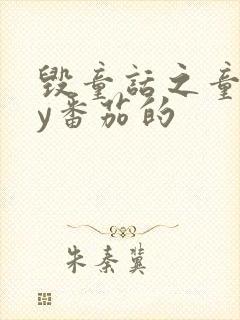 毁童话之童
y番茄的
朱秦冀